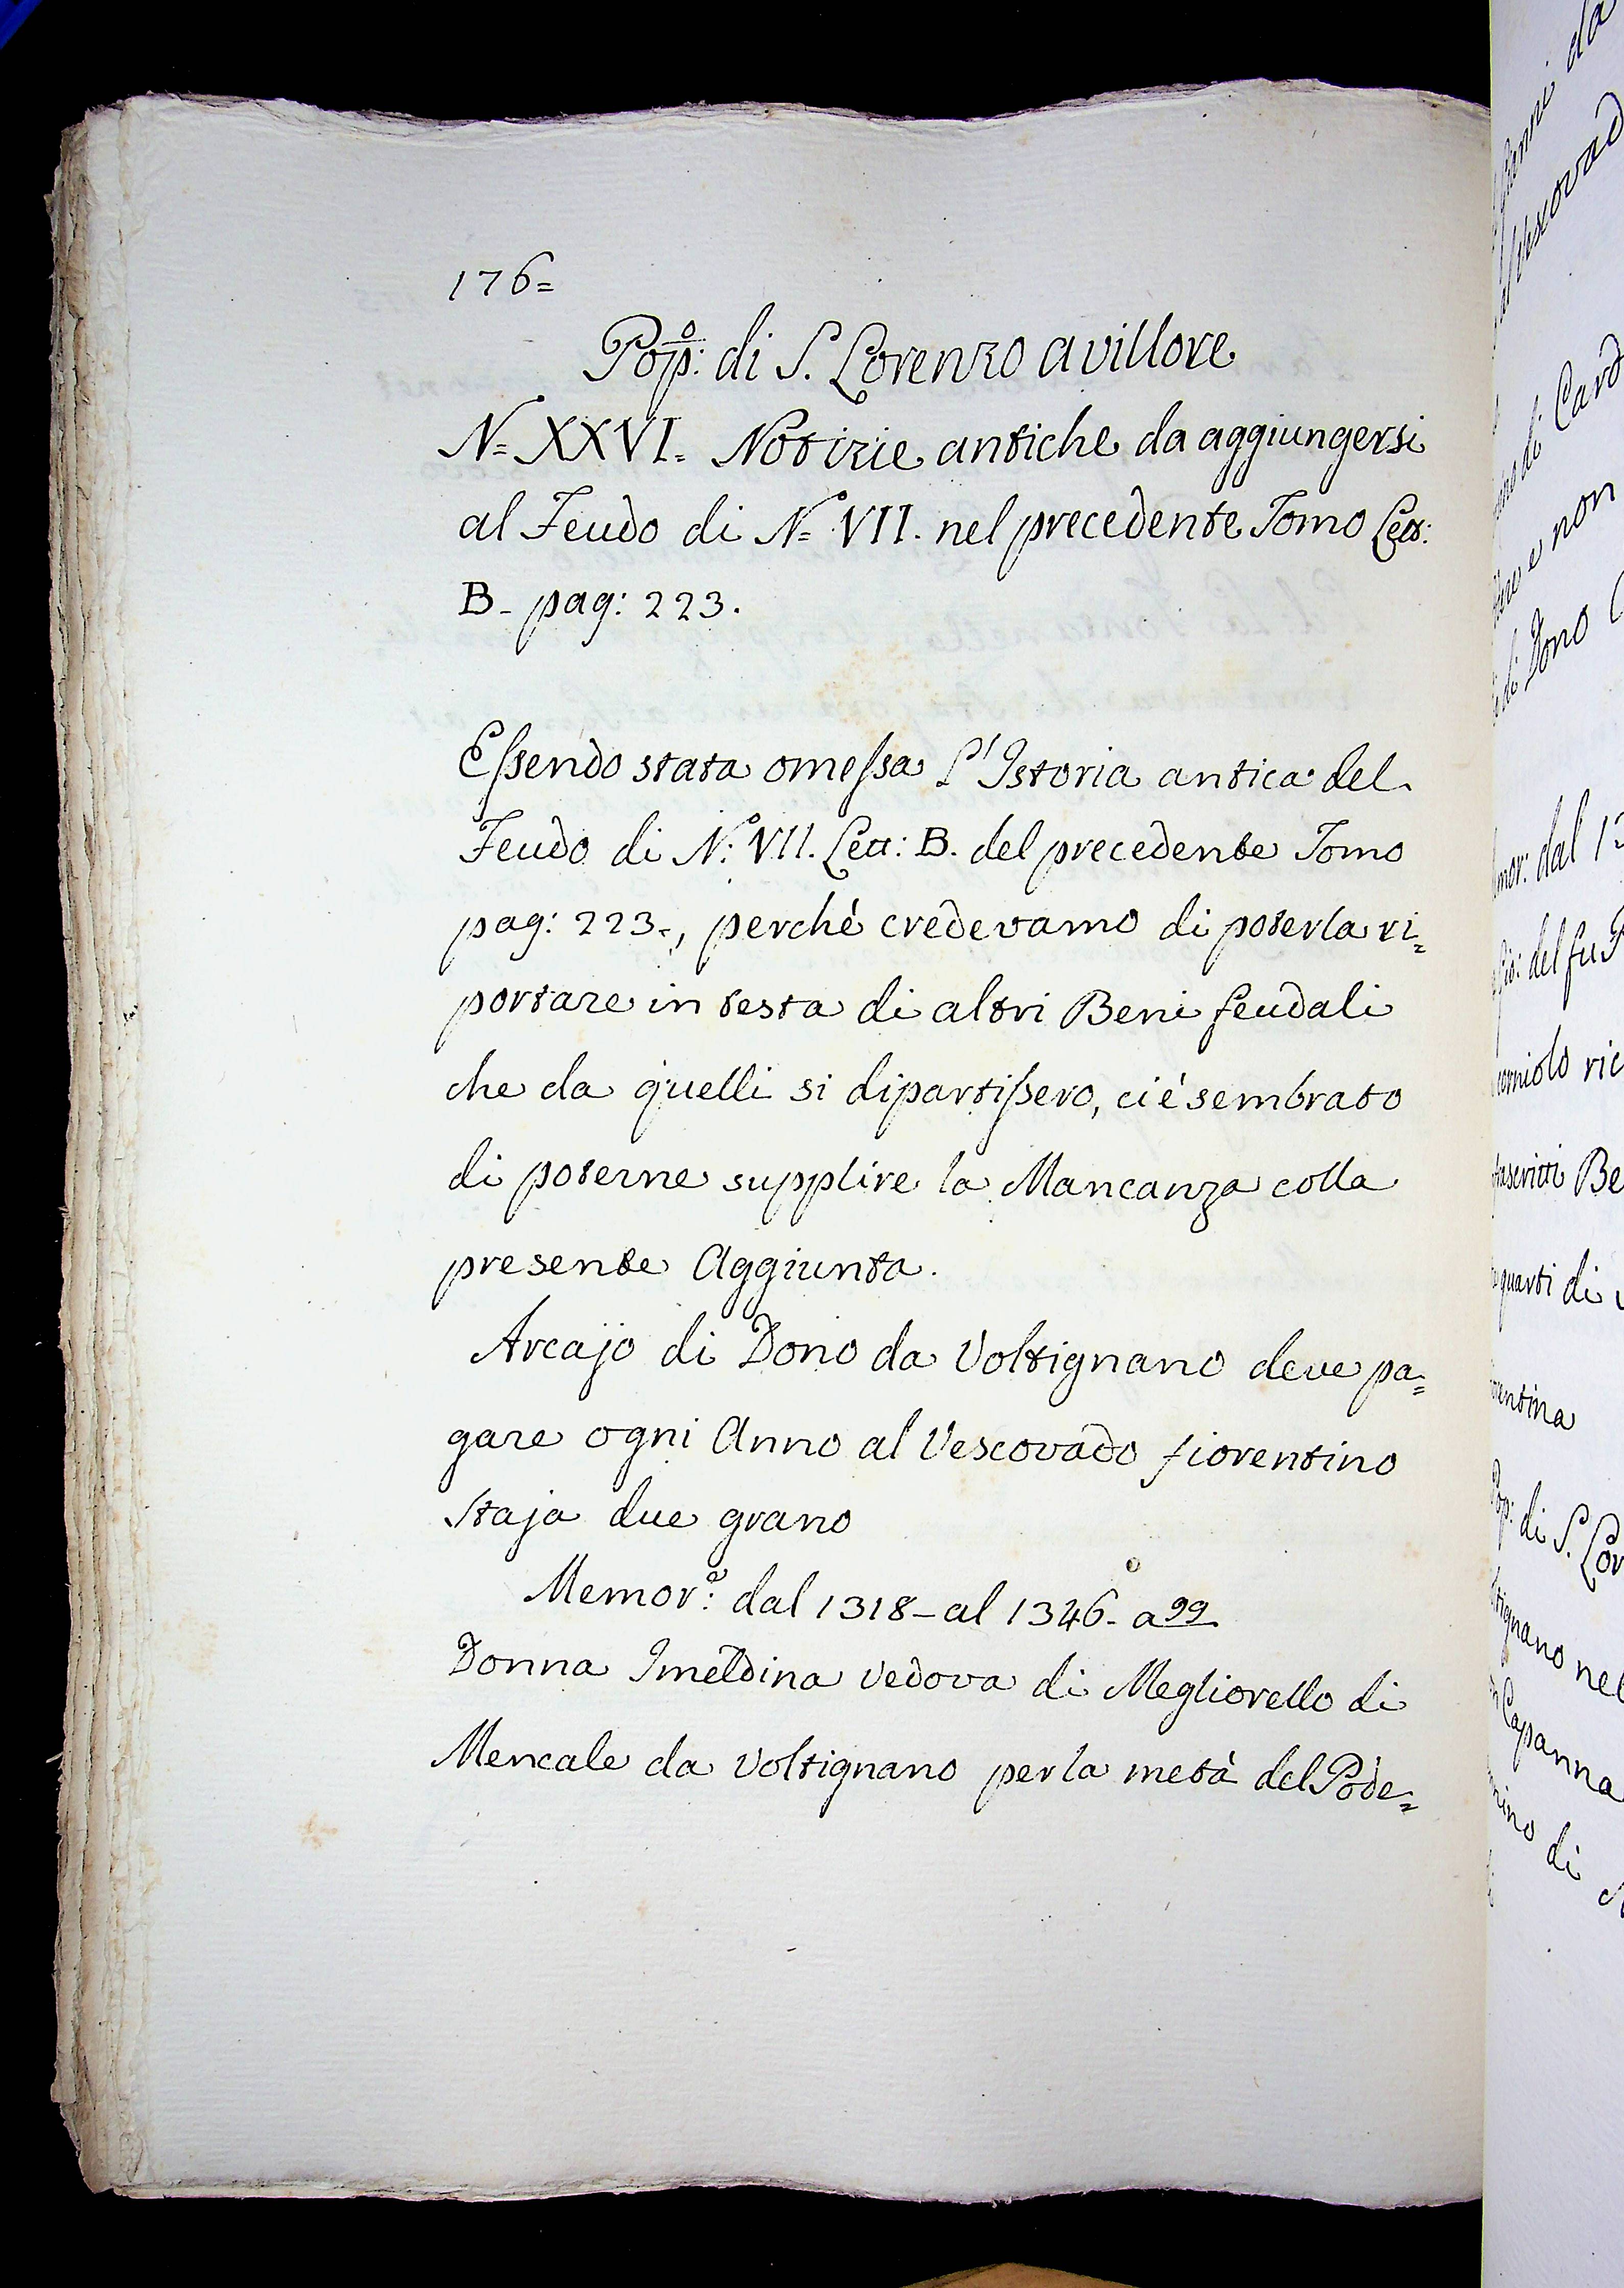 176=
Pop:º di S. Lorenzo a villore
N.º XXVI. Notizie antiche da aggiungersi
al Feudo di N.º VII. nel precedente Tomo Lett:
B. pag: 223.
Essendo stata omessa L'Istoria antica del
Feudo di N.º VII. Lett: B. del precedente Tomo
pag: 223., perchè credevamo di poterla ri=
portare in testa di altri Beni feudali
che da quelli si dipartissero, ci è sembrato
di poterne supplire la Mancanza colla
presente Aggiunta.
Arcajo di Dono da Voltignano deve pa=
gare ogni Anno al Vescovado fiorentino
Staja due grano
Memor:e dal 1318 - al 1346. a 99
Donna Imeldina vedova di Megliorello di
Mencale da Voltignano per la metà del Pode=
al Vescovad
di Card
e non
di Dono
mor: dal 13
Gio: del fu
corniolo ric
quarti di
Pop: di S. Lor
Capanna
di